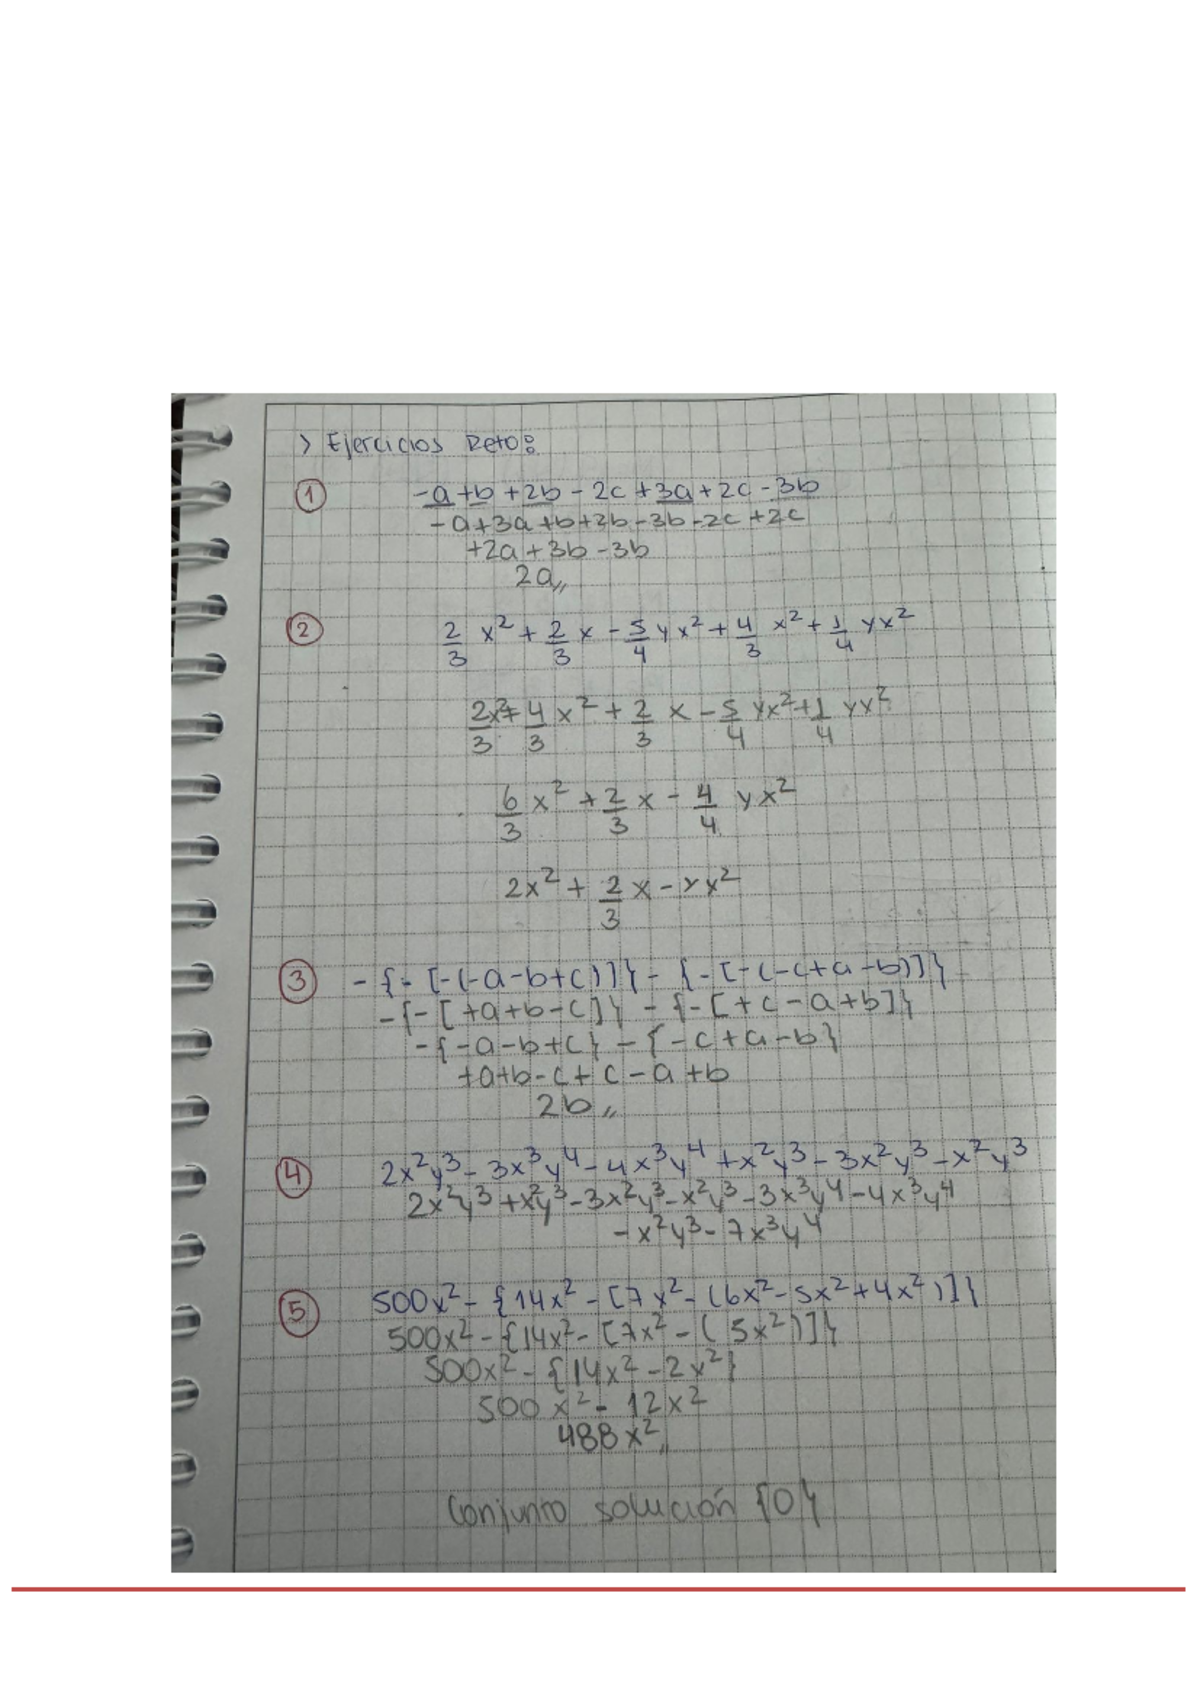 > Ejercicios Reto:
① -a+b+2b-2c+3a+2c-3b
-a+3a+b+2b-3b-2c+2c
+2a+3b-3b
2a,,
② 2/3 x² + 2/3 x - 5/4 yx² + 4/3 x² + 1/4 yx²
2/3 x² + 4/3 x² + 2/3 x - 5/4 yx² + 1/4 yx²
6/3 x² + 2/3 x - 4/4 yx²
2x² + 2/3 x - yx²
③ -{-[-(-a-b+c)]} - {-[-(-c+a-b)]}
-{-[+a+b-c]} - {-[+c-a+b]}
-{-a-b+c} - {-c+a-b}
+a+b-c+c-a+b
2b,,
④ 2x²y³-3x³y⁴-4x³y⁴+x²y³-3x²y³-x²y³
2x²y³+x²y³-3x²y³-x²y³-3x³y⁴-4x³y⁴
-x²y³-7x³y⁴
⑤ 500x²-{14x²-[7x²-(6x²-5x²+4x²)]}
500x²-{14x²-[7x²-(5x²)]}
500x²-{14x²-2x²}
500x²-12x²
488x²,,
Conjunto solución {0}